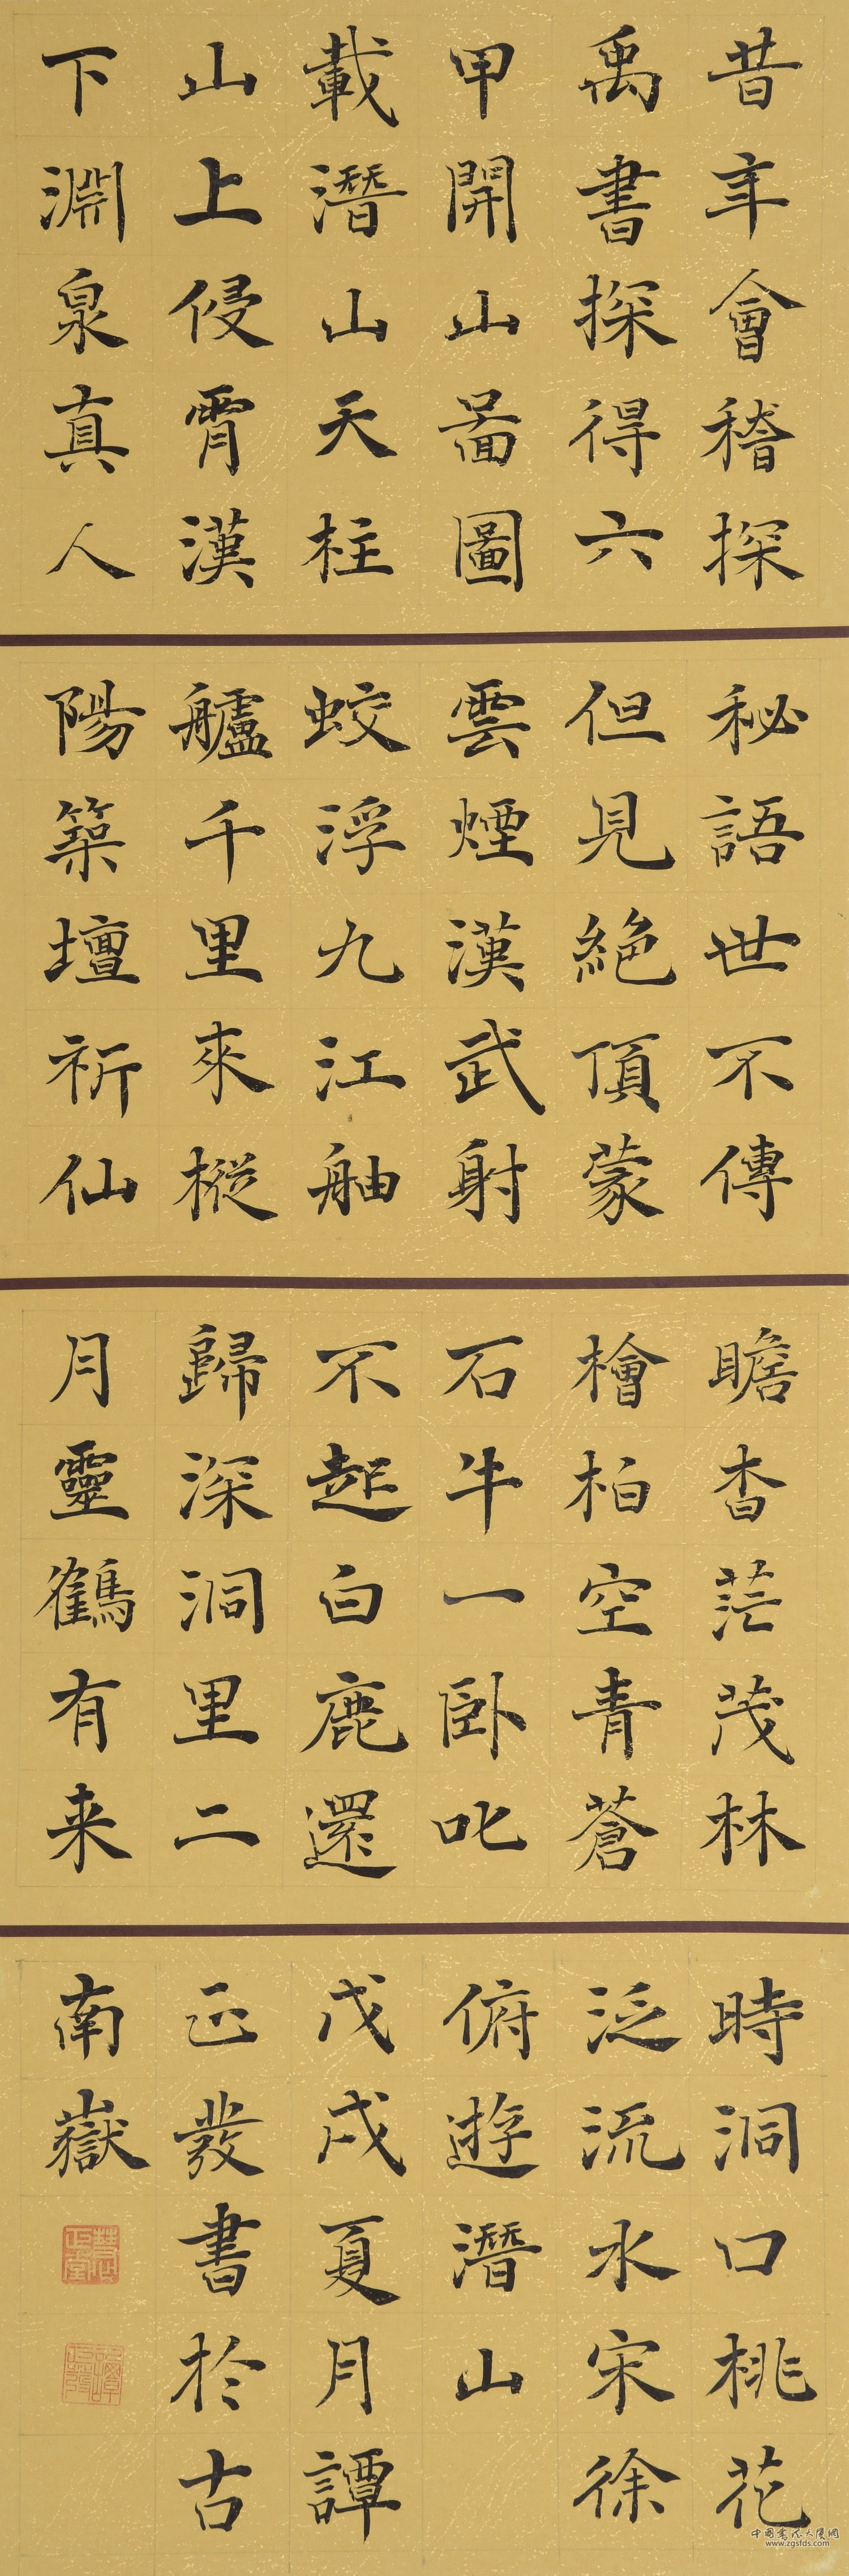 昔年會稽探
禹書探得六
甲開山啚圖
載潛山天柱
山上侵霄漢
下淵泉真人
秘語世不傳
但見絕頂蒙
雲煙漢武射
蛟浮九江舳
艫千里來樅
陽築壇祈仙
瞻杳茫茂林
檜柏空青蒼
石牛一卧叱
不起白鹿還
歸深洞里二
月靈鶴有来
時洞口桃花
泛流水宋徐
俯遊潛山
戊戌夏月譚
正發書於古
南嶽
中国书法大厦网
www.zgsfds.com